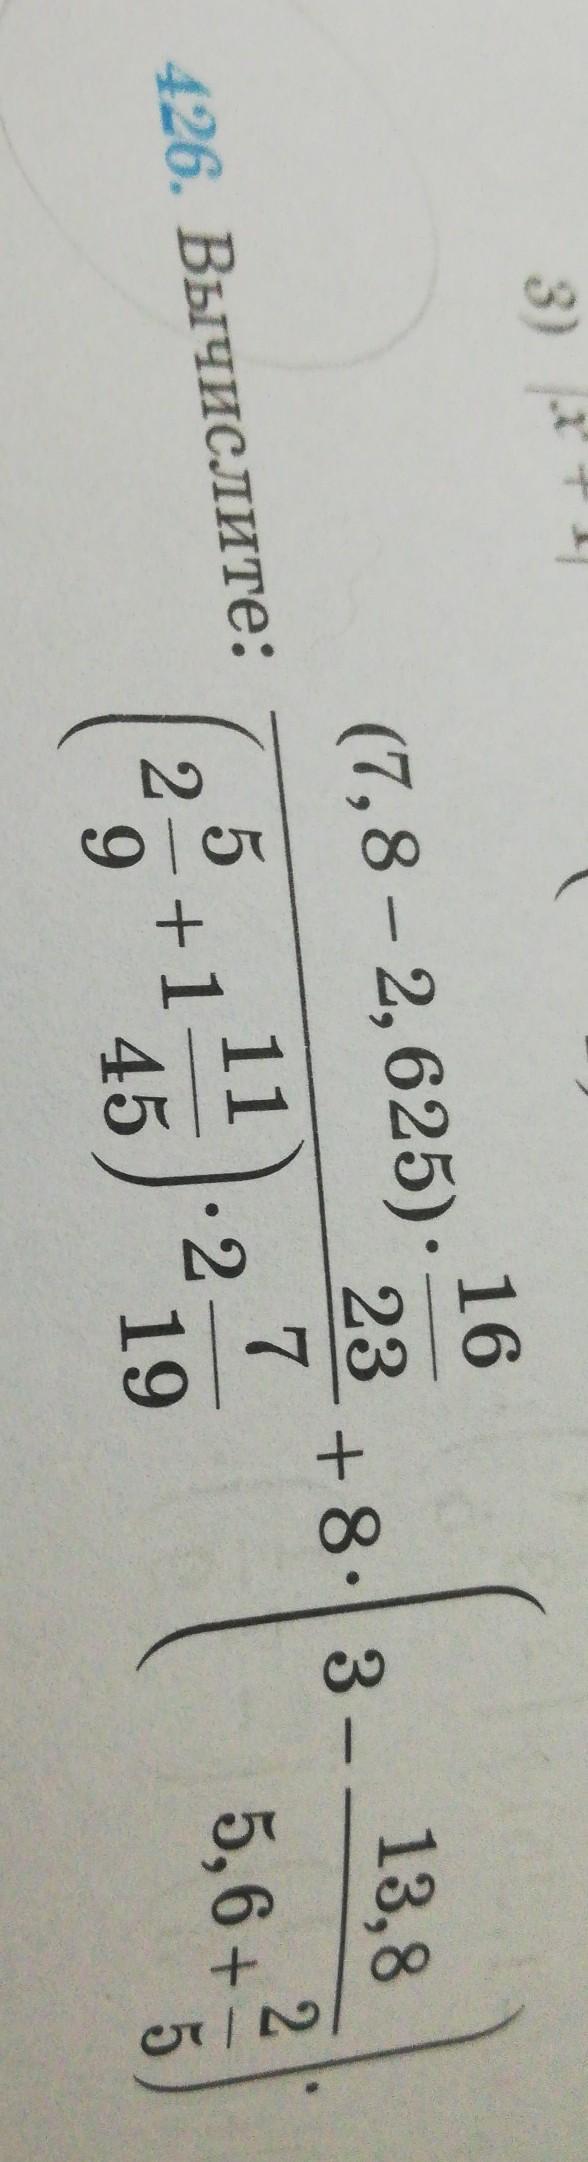 3) |x + 1|
426. Вычислите: \frac{(7,8 − 2,625) · \frac{16}{23}}{(2\frac{5}{9} + 1\frac{11}{45}) · 2\frac{7}{19}} + 8 · (3 − \frac{13,8}{5,6 + \frac{2}{5}}).